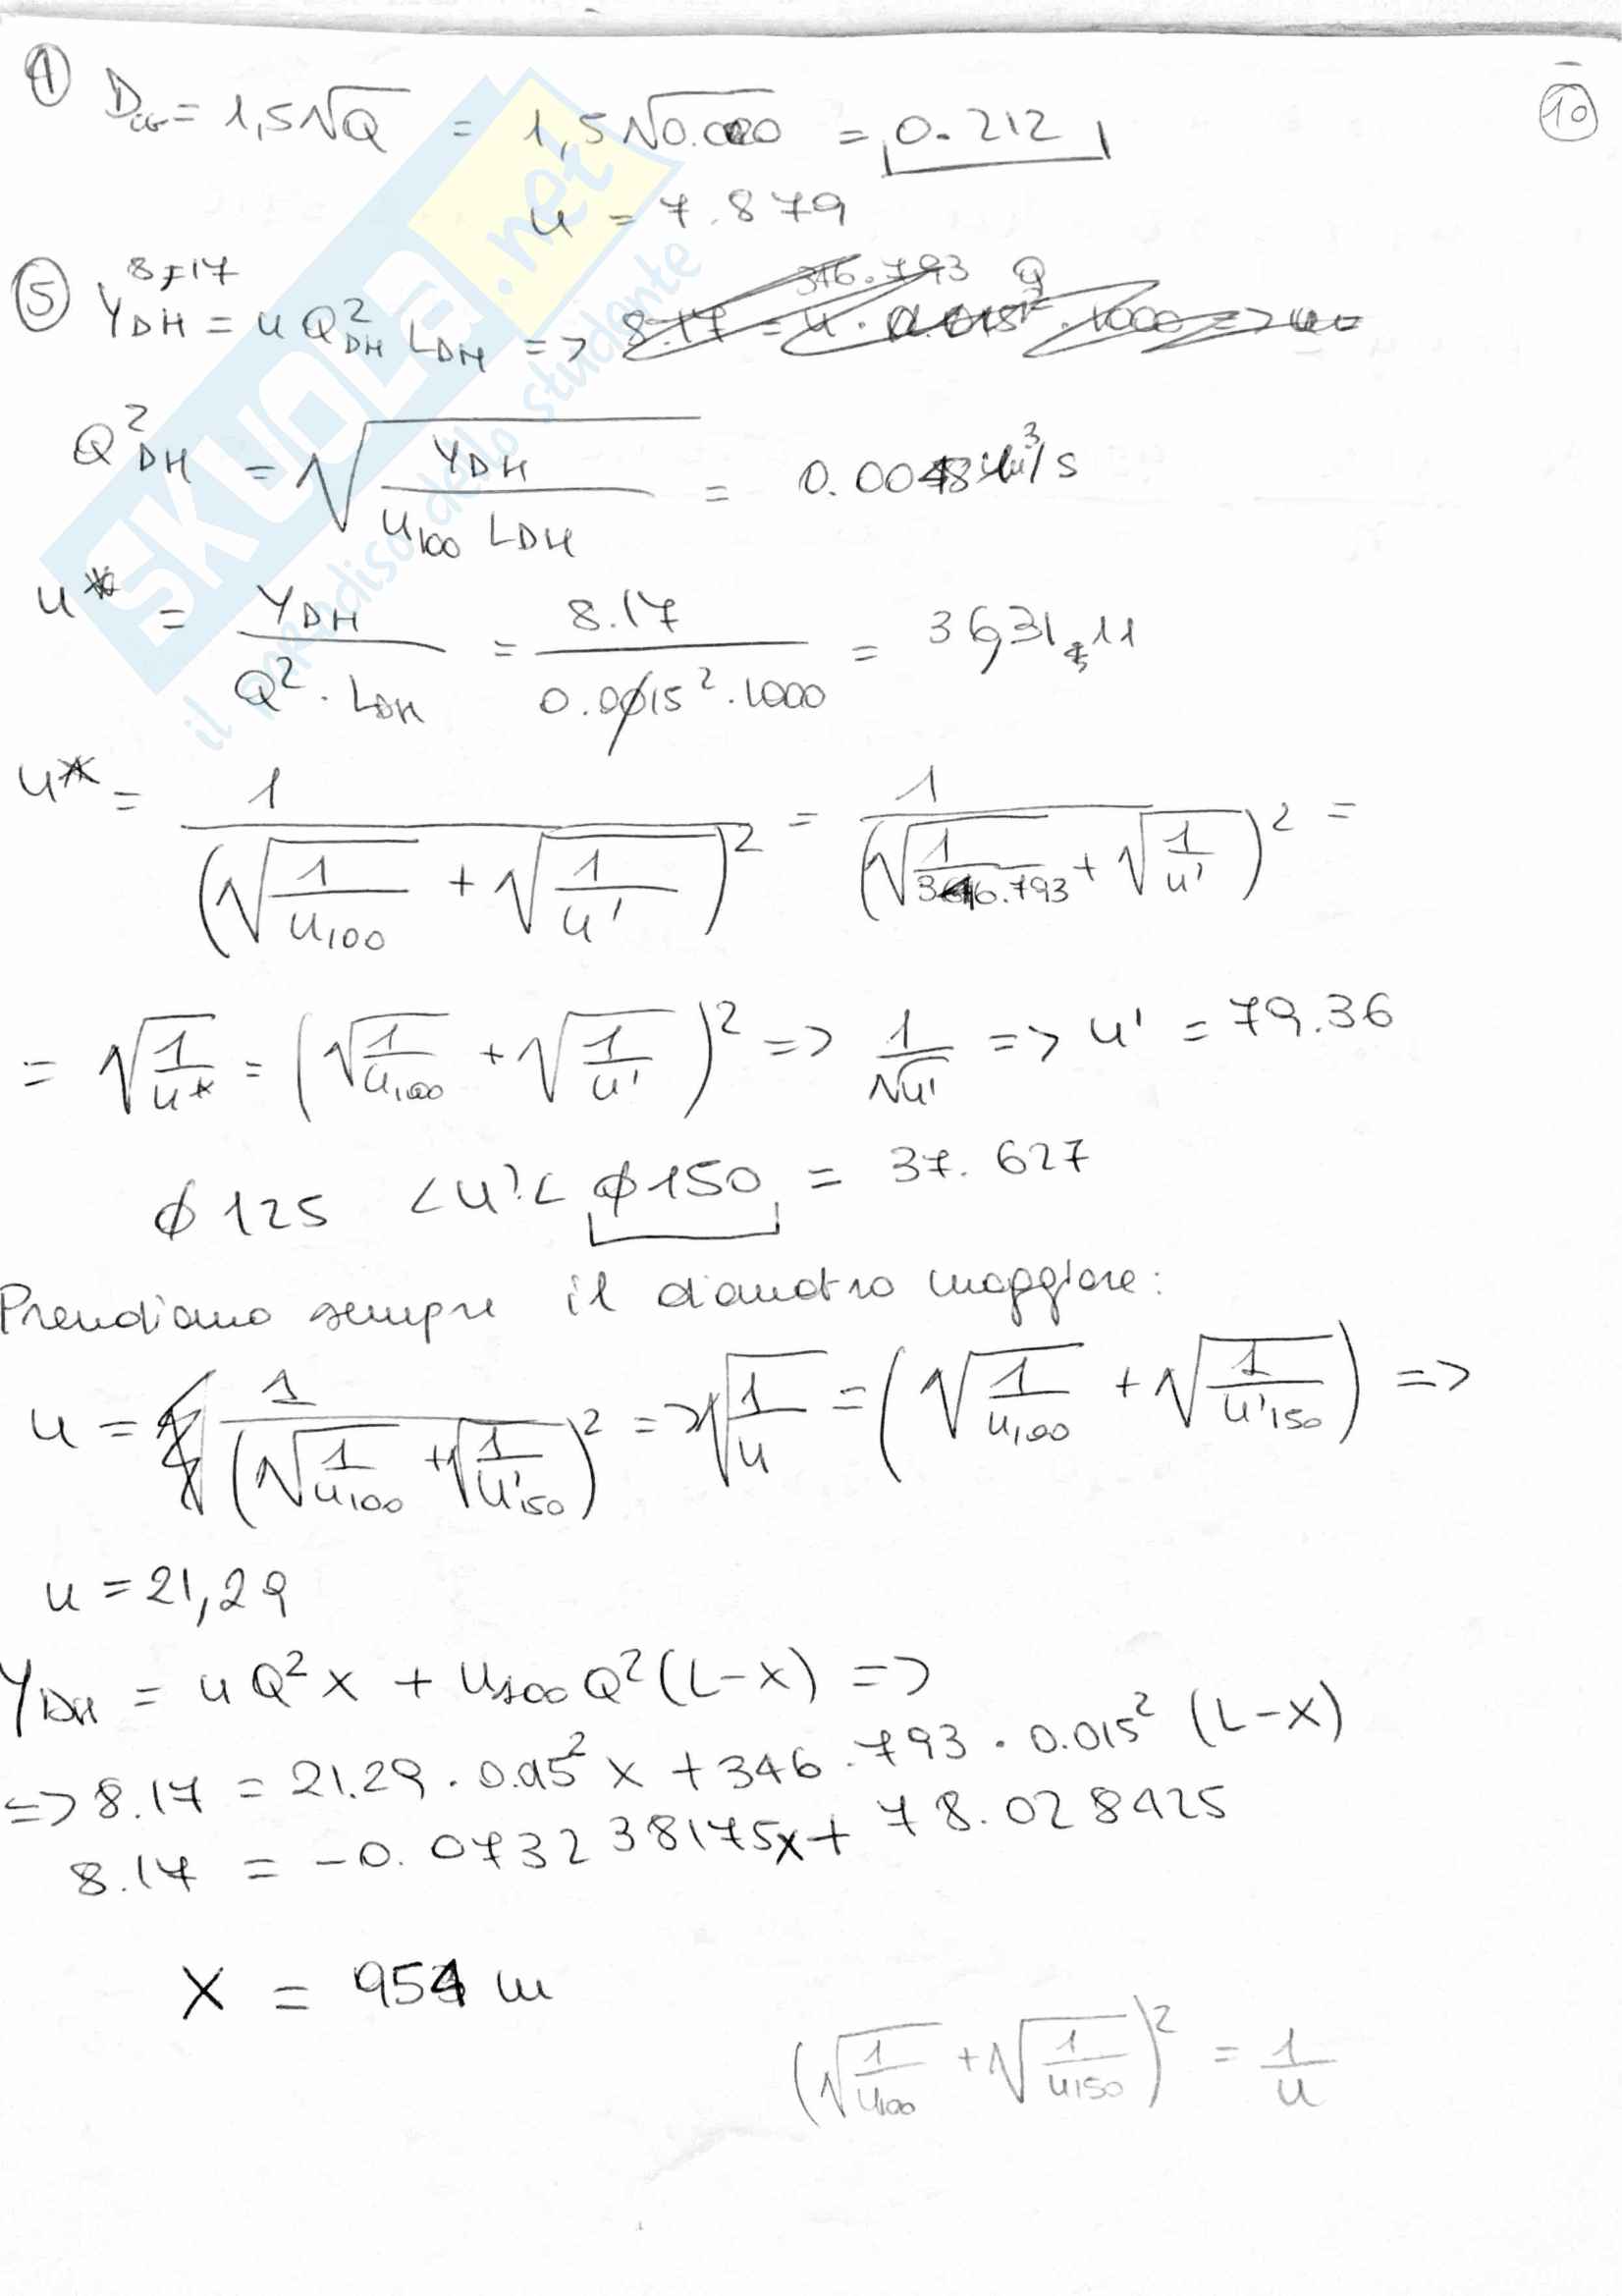 ① D = 1,5√Q = 1,5√0.020 = 0.212
⑩
u = 7.879
⑤ Y_DH = u Q²_DH L_DH =>
8,17
346.793
Q²_DH = √(Y_DH / (u₁₀₀ L_DH)) = 0.0048 m³/s
u* = Y_DH / (Q² · L_DH) = 8.17 / (0.0015² · 1000) = 36,31,11
u* = 1 / (√(1/u₁₀₀) + √(1/u'))² = 1 / (√(1/346.793) + √(1/u'))² =
= √(1/u*) = (√(1/u₁₀₀) + √(1/u'))² => 1/√u' => u' = 79.36
ϕ 125 < u' < ϕ 150 = 37.627
Prendiamo sempre il diametro maggiore:
u = 1 / (√(1/u₁₀₀) + √(1/u'₁₅₀))² => √(1/u) = (√(1/u₁₀₀) + √(1/u'₁₅₀)) =>
u = 21,29
Y_DH = u Q² x + u₁₀₀ Q² (L-x) =>
=> 8.17 = 21.29 · 0.015² x + 346.793 · 0.015² (L-x)
8.17 = -0.073238175x + 78.028425
x = 954 m
(√(1/u₁₀₀) + √(1/u₁₅₀))² = 1/u
SKUOLA.net
il paradiso dello studente